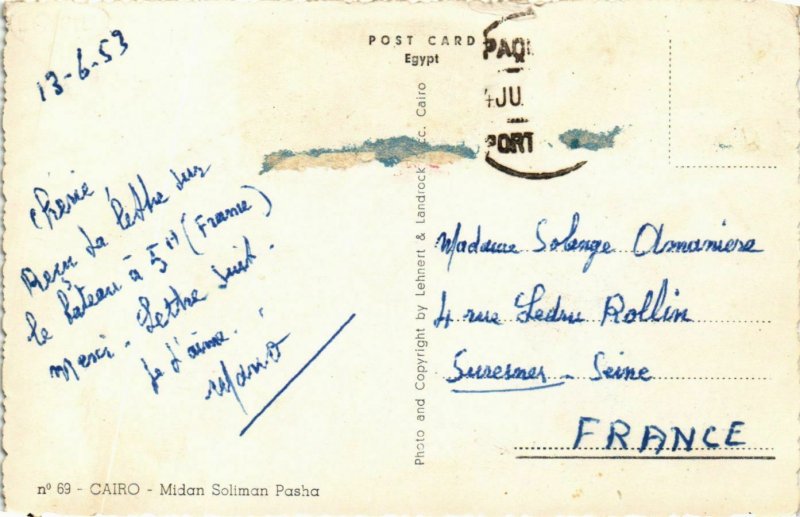 13-6-53
POST CARD
Egypt
PAQU
4 JU
PORT
Chérie
Reçu ta lettre sur
le bateau à 5H (France)
Merci - Lettre suit.
Je t'aime.
Mario
Photo and Copyright by Lehnert & Landrock cc. Cairo
Madame Solange Amaniera
4 rue Ledru Rollin
Suresnes - Seine
FRANCE
nº 69 - CAIRO - Midan Soliman Pasha